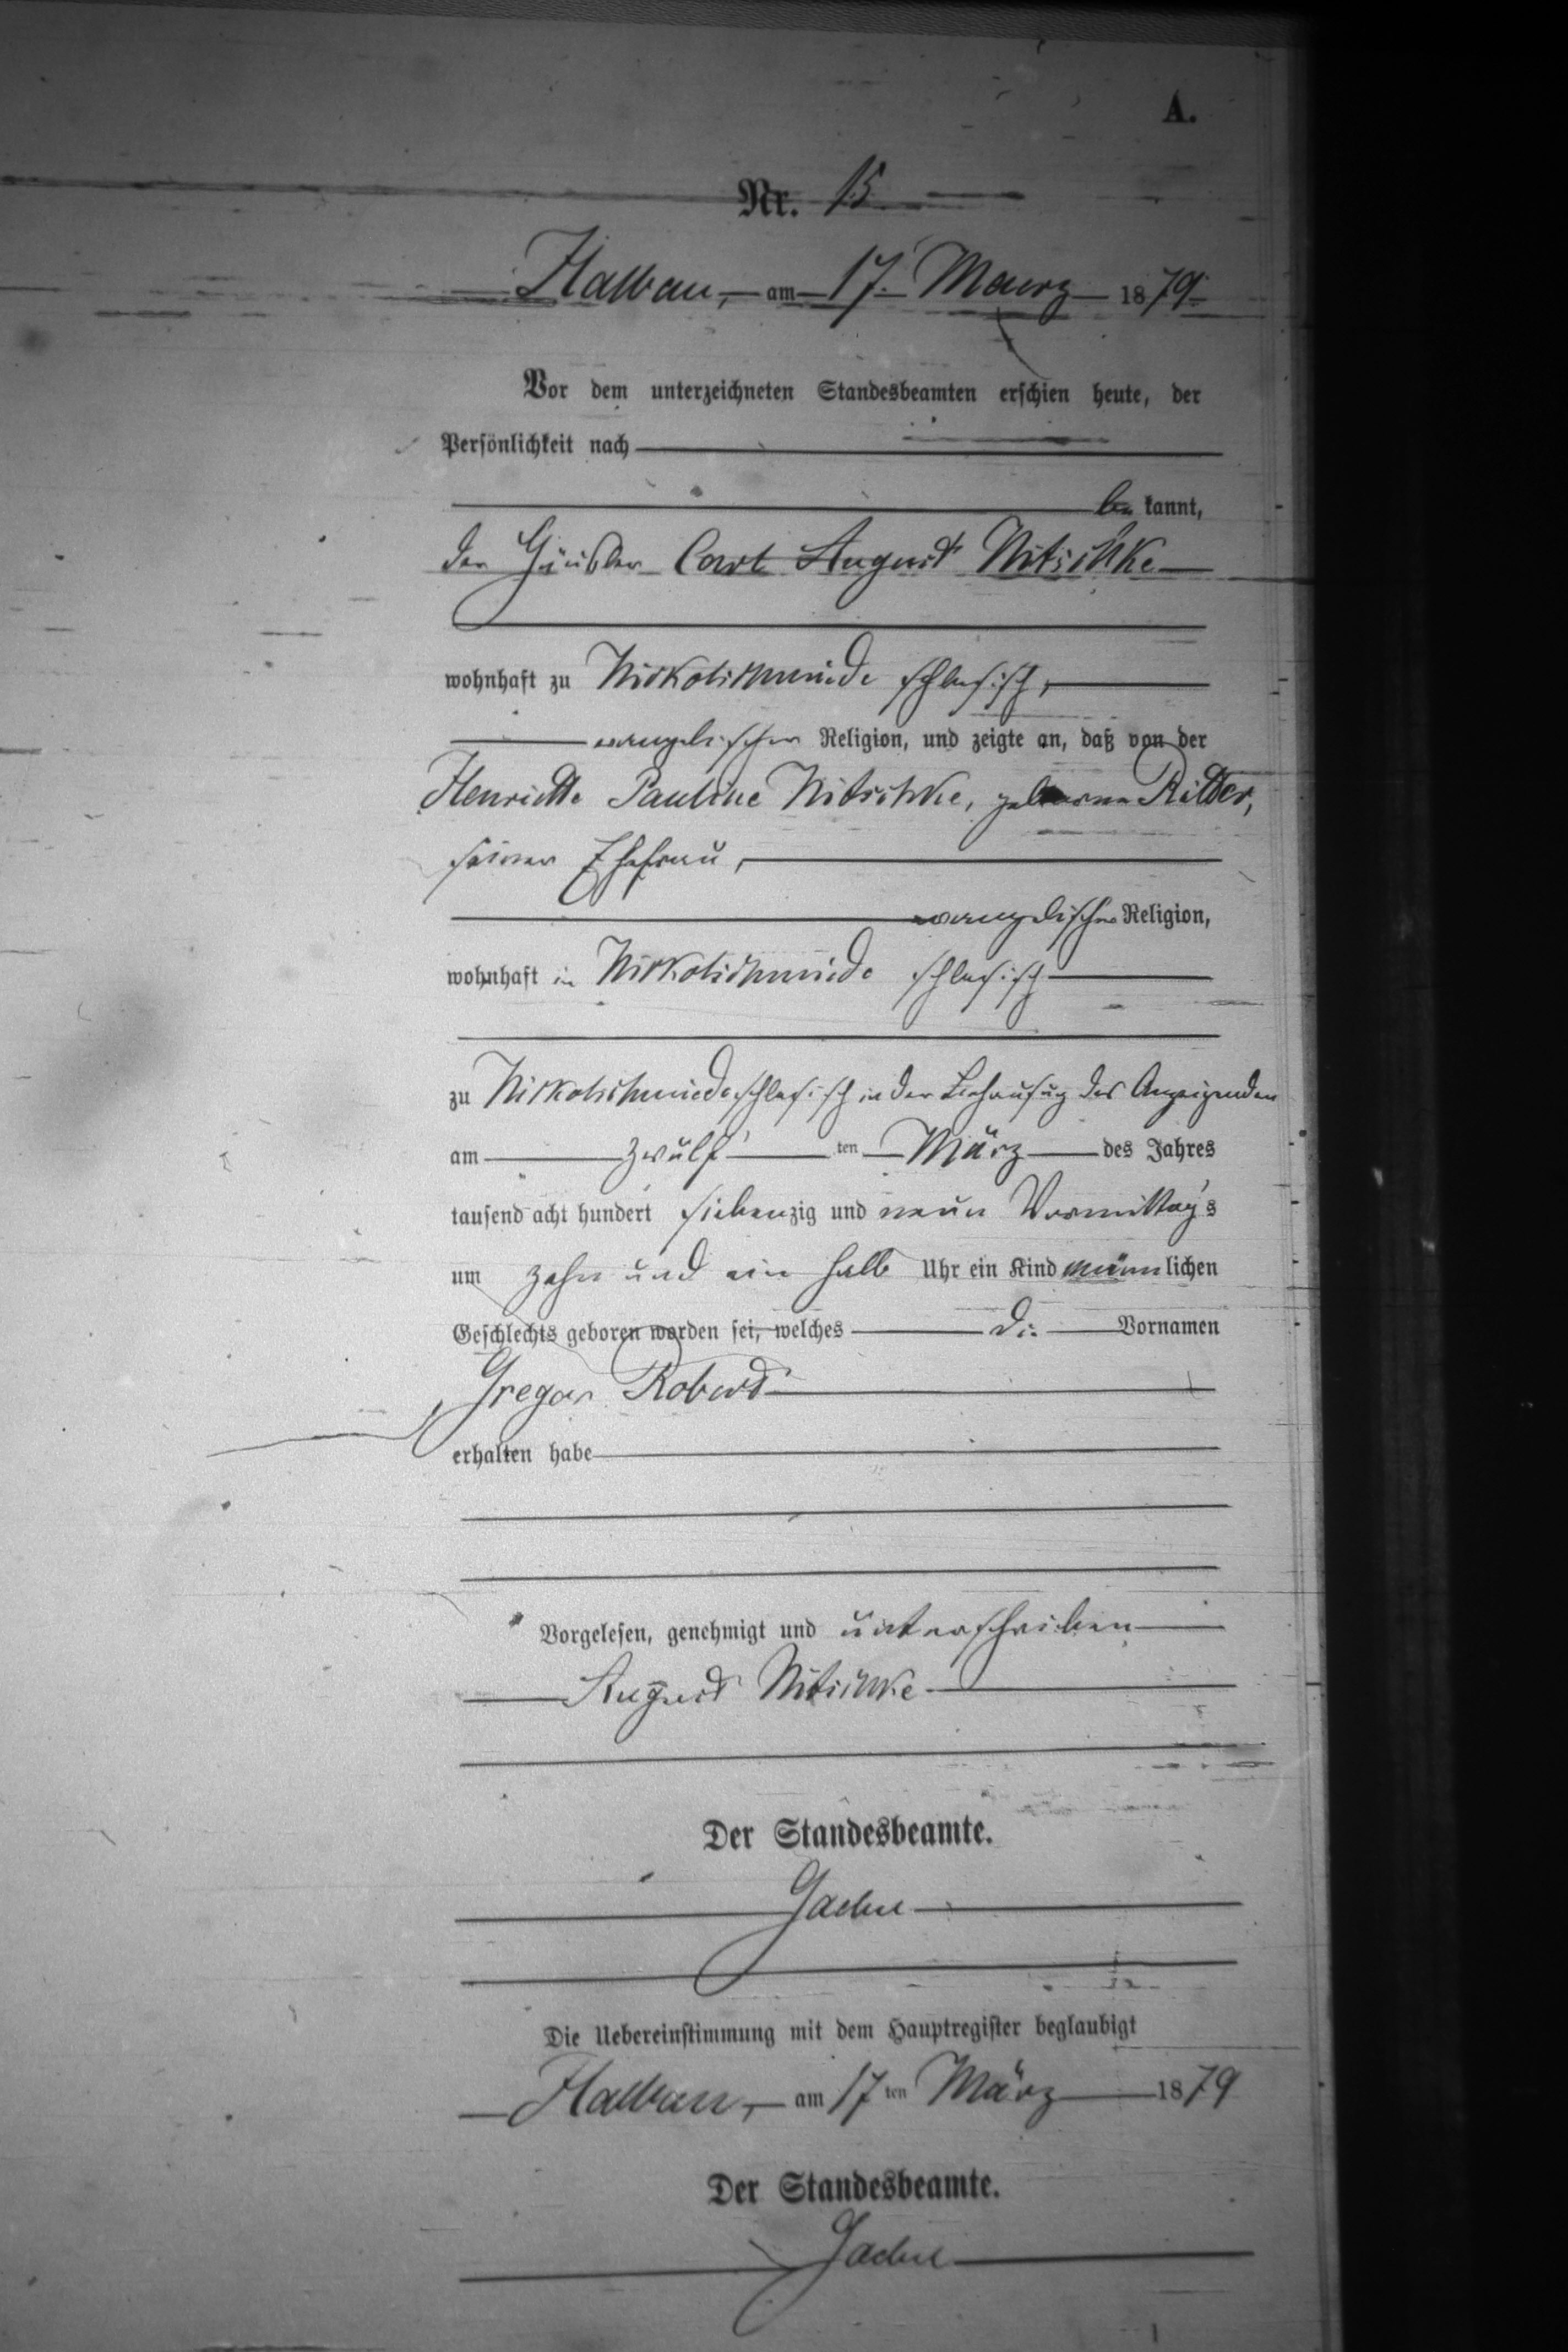 A.
Nr. 15
Halbau, am 17. Maerz 1879
Vor dem unterzeichneten Standesbeamten erschien heute, der
Persönlichkeit nach
be kannt,
der Häusler Carl August Nitschke
wohnhaft zu Nikolschmiede schlesisch,
evangelischer Religion, und zeigte an, daß von der
Henriette Pauline Nitschke, geborene Ritter,
seiner Ehefrau,
evangelischer Religion,
wohnhaft in Nikolschmiede schlesisch
zu Nikolschmiede schlesisch in der Behausung des Anzeigenden
am zwölf ten März des Jahres
tausend acht hundert siebenzig und neun Vormittags
um zehn und ein halb Uhr ein Kind männlichen
Geschlechts geboren worden sei, welches die Vornamen
Gregor Robert
erhalten habe
Vorgelesen, genehmigt und unterschrieben
August Nitschke
Der Standesbeamte.
Die Uebereinstimmung mit dem Hauptregister beglaubigt
Halbau, am 17ten März 1879
Der Standesbeamte.